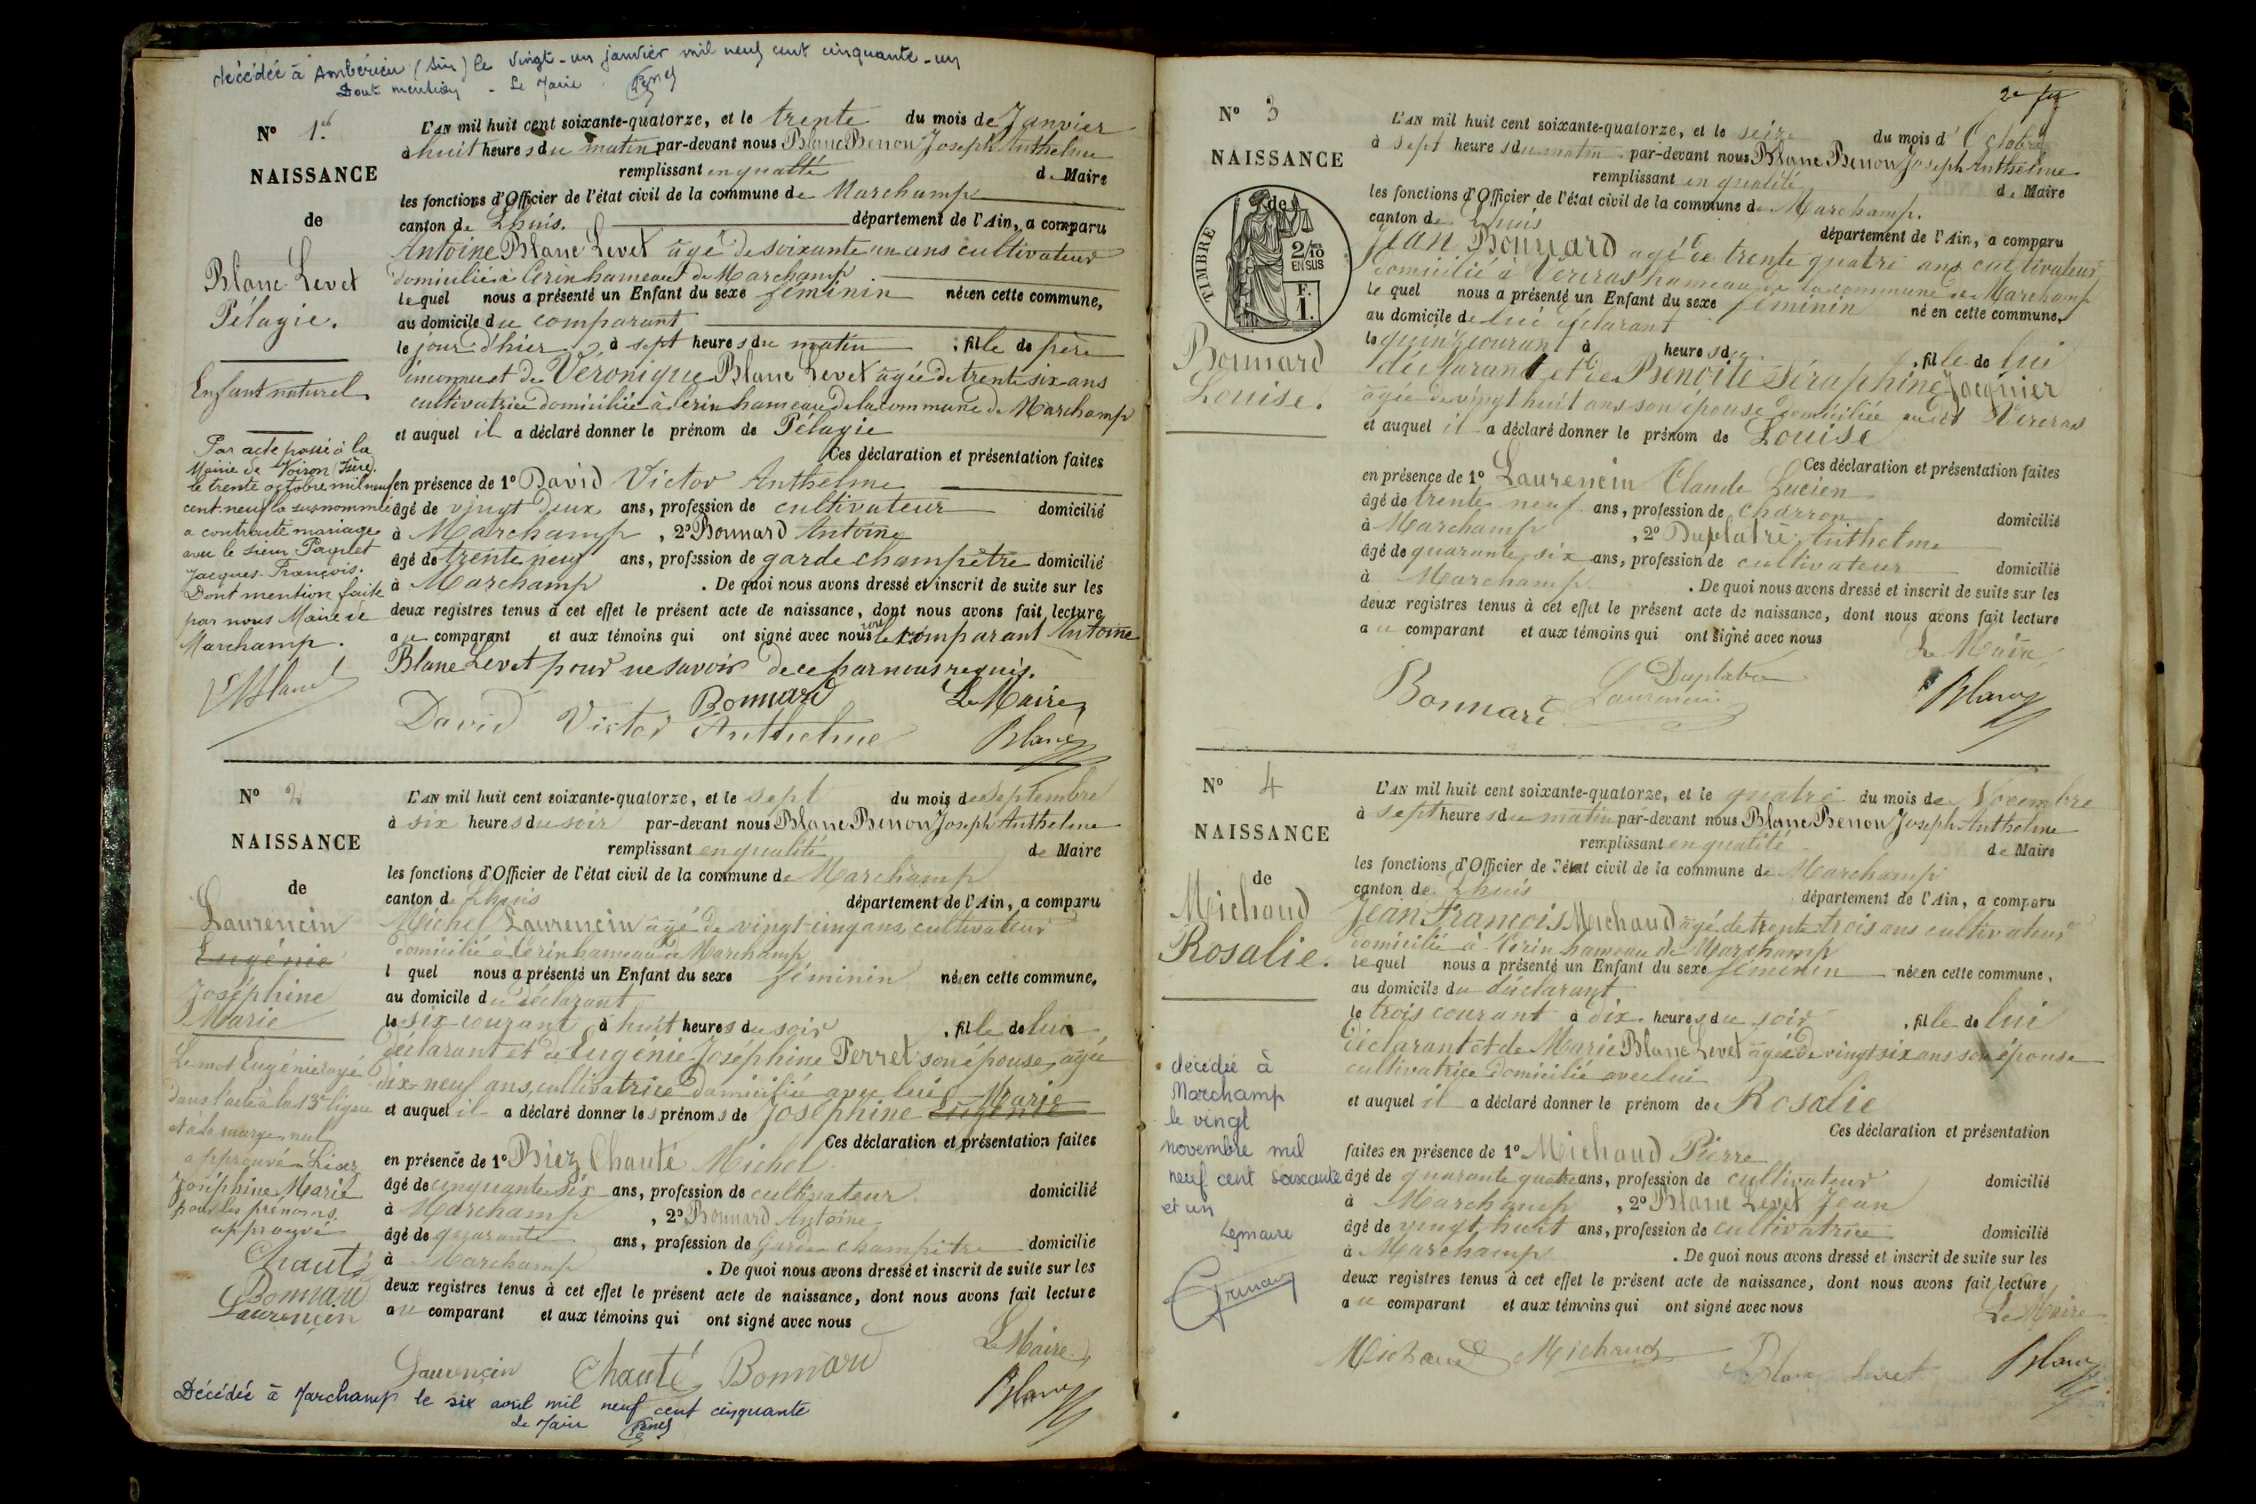 décédée à Ambérieu (Ain) le vingt-un janvier mil neuf cent cinquante-un
Dont mention - Le Maire
N° 1er
NAISSANCE
de
Blanc-Levet
Pélagie.
Enfant naturel
Par acte passé à la
Mairie de Voiron Isère,
le trente octobre mil neuf
cent neuf la susnommée
a contracté mariage
avec le sieur Paquet
Jacques-François.
Dont mention faite
par nous Maire de
Marchamp.
L'AN mil huit cent soixante-quatorze, et le trente du mois de Janvier
à huit heures du matin par-devant nous Blanc Benon Joseph Anthelme
remplissant en qualité de Maire
les fonctions d'Officier de l'état civil de la commune de Marchamp
canton de Lhuis. département de l'Ain, a comparu
Antoine Blanc Levet âgé de soixante un ans cultivateur
domicilié à Cerin hameau de Marchamp
lequel nous a présenté un Enfant du sexe féminin née en cette commune,
au domicile du comparant
le jour d'hier à sept heures du matin, fille de père
inconnu et de Véronique Blanc Levet âgée de trente six ans
cultivatrice domiciliée à Cerin hameau de la commune de Marchamp
et auquel il a déclaré donner le prénom de Pélagie
Ces déclaration et présentation faites
en présence de 1° David Victor Anthelme
âgé de vingt deux ans, profession de cultivateur domicilié
à Marchamp, 2° Bonnard Antoine
âgé de trente neuf ans, profession de garde champêtre domicilié
à Marchamp. De quoi nous avons dressé et inscrit de suite sur les
deux registres tenus à cet effet le présent acte de naissance, dont nous avons fait lecture
au comparant et aux témoins qui ont signé avec nous non le comparant Antoine
Blanc Levet pour ne savoir de ce par nous requis.
Bonnard Le Maire
David Victor Anthelme Blanc
N° 2
NAISSANCE
de
Laurencin
Eugénie
Joséphine
Marie
Le mot Eugénie rayé
dans l'acte à la 13e ligne
et à la marge nul
approuvé Lisez
Joséphine Marie
pour les prénoms
approuvé
Chauté
Bonnard
Laurencin
L'AN mil huit cent soixante-quatorze, et le sept du mois de Septembre
à six heures du soir par-devant nous Blanc Benon Joseph Anthelme
remplissant en qualité de Maire
les fonctions d'Officier de l'état civil de la commune de Marchamp
canton de Lhuis département de l'Ain, a comparu
Michel Laurencin âgé de vingt-cinq ans, cultivateur
domicilié à Cerin hameau de Marchamp
l quel nous a présenté un Enfant du sexe féminin née en cette commune,
au domicile du déclarant
le six courant à huit heures du soir, fille de lui
déclarant et de Eugénie Joséphine Perret son épouse, âgée
dix-neuf ans, cultivatrice domiciliée avec lui Marie
et auquel il a déclaré donner les prénoms de Joséphine Eugénie
Ces déclaration et présentation faites
en présence de 1° Biez Chauté Michel
âgé de cinquante six ans, profession de cultivateur domicilié
à Marchamp, 2° Bonnard Antoine
âgé de quarante ans, profession de Garde champêtre domicilié
à Marchamp. De quoi nous avons dressé et inscrit de suite sur les
deux registres tenus à cet effet le présent acte de naissance, dont nous avons fait lecture
au comparant et aux témoins qui ont signé avec nous
Le Maire
Laurencin Chauté Bonnard Blanc
Décédée à Marchamp le six avril mil neuf cent cinquante
Le Maire
N° 3
NAISSANCE
de
TIMBRE
2/10 EN SUS
F. 1.
Bonnard
Louise.
L'AN mil huit cent soixante-quatorze, et le seize du mois d'Octobre
à sept heures du matin par-devant nous Blanc Benon Joseph Anthelme
remplissant en qualité de Maire
les fonctions d'Officier de l'état civil de la commune de Marchamp.
canton de Lhuis département de l'Ain, a comparu
Jean Bonnard âgé de trente quatre ans cultivateur
domicilié à Vercras hameau de la commune de Marchamp
lequel nous a présenté un Enfant du sexe féminin né en cette commune,
au domicile de lui déclarant
le quinze courant à heures du, fille de lui
déclarant et de Benoite Séraphine Jacquier
âgée de vingt huit ans son épouse domiciliée au dit Vercras
et auquel il a déclaré donner le prénom de Louise
Ces déclaration et présentation faites
en présence de 1° Laurencin Claude Lucien
âgé de trente neuf ans, profession de charron domicilié
à Marchamp, 2° Duplatre Anthelme
âgé de quarante six ans, profession de cultivateur domicilié
à Marchamp. De quoi nous avons dressé et inscrit de suite sur les
deux registres tenus à cet effet le présent acte de naissance, dont nous avons fait lecture
au comparant et aux témoins qui ont signé avec nous
Le Maire
Bonnard Laurencin Duplatre Blanc
N° 4
NAISSANCE
de
Michaud
Rosalie.
décédée à
Marchamp
le vingt
novembre mil
neuf cent soixante
et un
Le maire
L'AN mil huit cent soixante-quatorze, et le quatre du mois de Novembre
à sept heures du matin par-devant nous Blanc Benon Joseph Anthelme
remplissant en qualité de Maire
les fonctions d'Officier de l'état civil de la commune de Marchamp
canton de Lhuis département de l'Ain, a comparu
Jean François Michaud âgé de trente trois ans cultivateur
domicilié à Cerin hameau de Marchamp
lequel nous a présenté un Enfant du sexe féminin née en cette commune,
au domicile du déclarant
le trois courant à dix heures du soir, fille de lui
déclarant et de Marie Blanc Levet âgée de vingt six ans son épouse
cultivatrice domicilié avec lui
et auquel il a déclaré donner le prénom de Rosalie
Ces déclaration et présentation
faites en présence de 1° Michaud Pierre
âgé de quarante quatre ans, profession de cultivateur domicilié
à Marchamp, 2° Blanc Levet Jean
âgé de vingt huit ans, profession de cultivatrice domicilié
à Marchamp. De quoi nous avons dressé et inscrit de suite sur les
deux registres tenus à cet effet le présent acte de naissance, dont nous avons fait lecture
au comparant et aux témoins qui ont signé avec nous
Le Maire
Michaud Michaud Blanc Levet Blanc